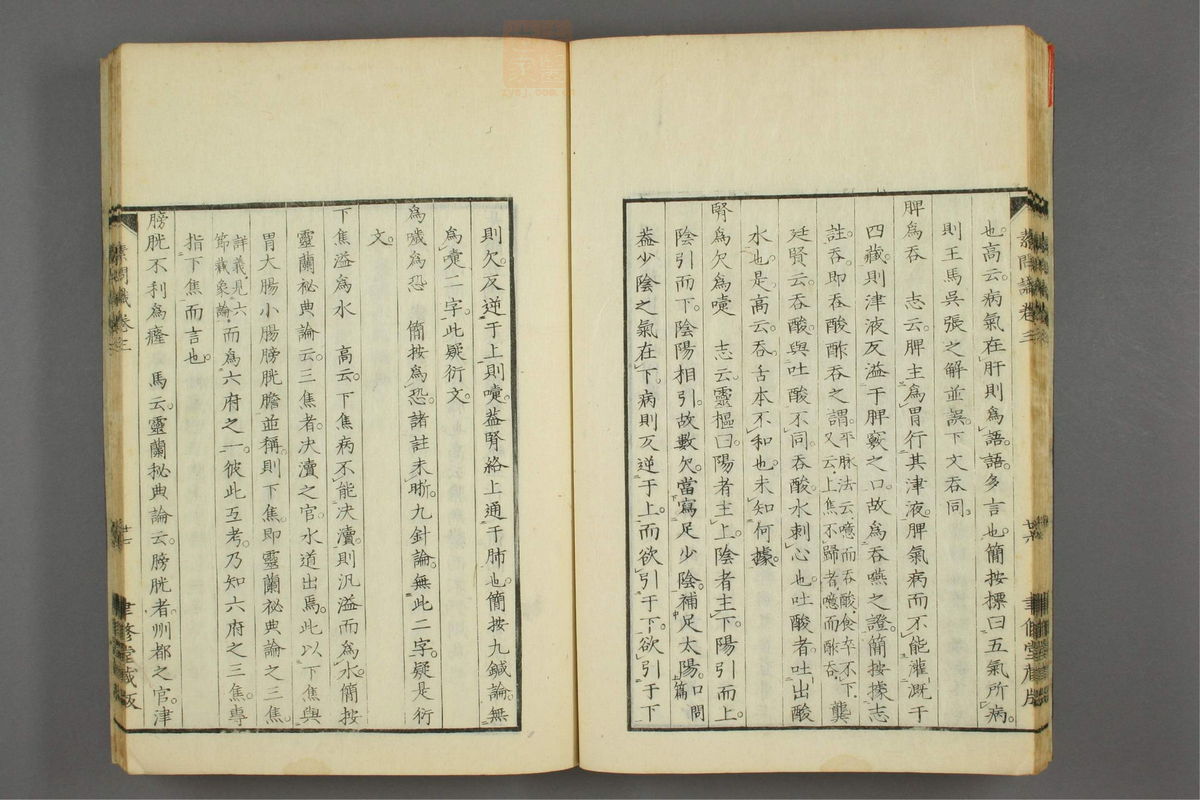 也。高云。病氣在肝則爲語。語。多言也。簡按標曰五氣所病。
則王馬吳張之解並誤。下文吞同。
脾爲吞　志云。脾主爲胃行其津液。脾氣病而不能灌漑于
四藏。則津液反溢于脾竅之口。故爲吞嚥之證。簡按據志
註。吞。即吞酸酢吞之謂。平脉法云。噫而吞酸。食卒不下。又云。上焦不歸者。噫而酢吞。龔
廷賢云。吞酸與吐酸不同。吞酸。水刺心也。吐酸者。吐出酸
水也。是。高云。吞。舌本不和也。未知何據。
腎爲欠爲嚏　志云。靈樞曰。陽者主上。陰者主下。陽引而上。
陰引而下。陰陽相引。故數欠。當寫足少陰。補足太陽。口問篇
葢少陰之氣在下。病則反逆于上。而欲引于下。欲引于下
則欠。反逆于上則嚏。葢腎絡上通于肺也。簡按九鍼論。無
爲嚏二字。此疑衍文。
爲噦爲恐　簡按爲恐。諸註未晰。九針論。無此二字。疑是衍
文。
下焦溢爲水　高云。下焦病不能決瀆。則汎溢而爲水。簡按
靈蘭祕典論云。三焦者。決瀆之官。水道出焉。此以下焦與
胃大腸小腸膀胱膽並稱。則下焦即靈蘭祕典論之三焦。
詳義見六節藏象論。而爲六府之一。彼此互考。乃知六府之三焦。專
指下焦而言也。
膀胱不利爲癃　馬云。靈蘭秘典論云。膀胱者。州都之官。津
素問識卷三
廿六
聿修堂藏版
素問識卷三
廿七
聿修堂藏版